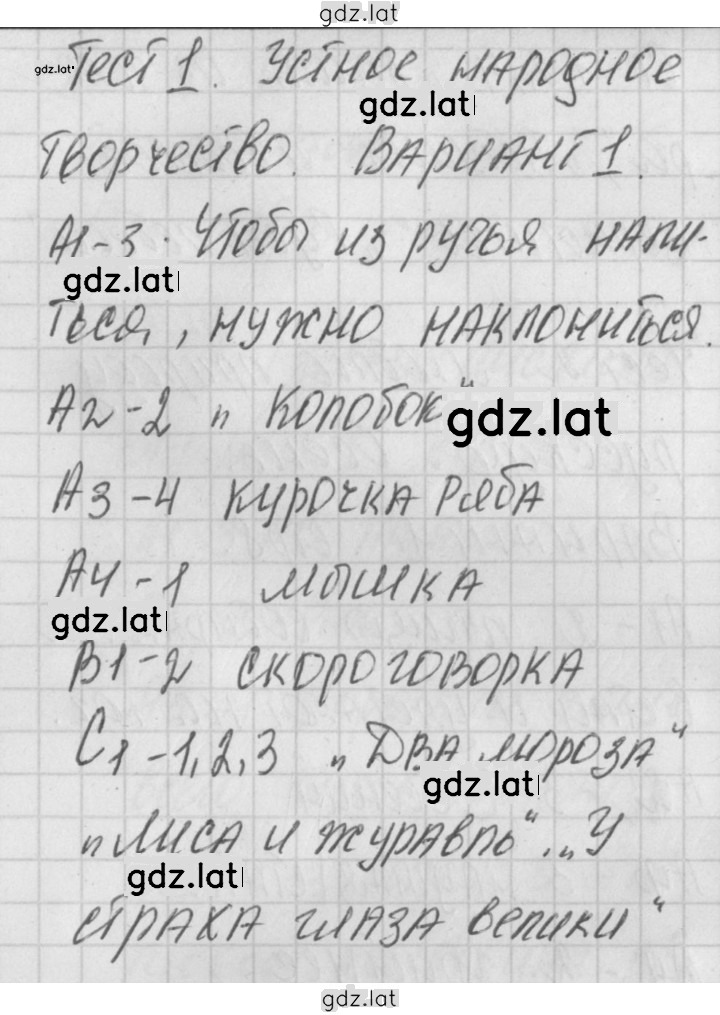 gdz.lat
gdz.lat
Тест 1. Устное народное
gdz.lat
творчество. Вариант 1.
А1-3. Чтобы из ручья напи-
gdz.lat
ться, нужно наклониться.
А2-2 „Колобок"
gdz.lat
А3-4 Курочка Ряба
А4-1 мышка
gdz.lat
В1-2 скороговорка
С1-1,2,3 „Два мороза"
gdz.lat
„Лиса и журавль". „У
gdz.lat
страха глаза велики"
gdz.lat